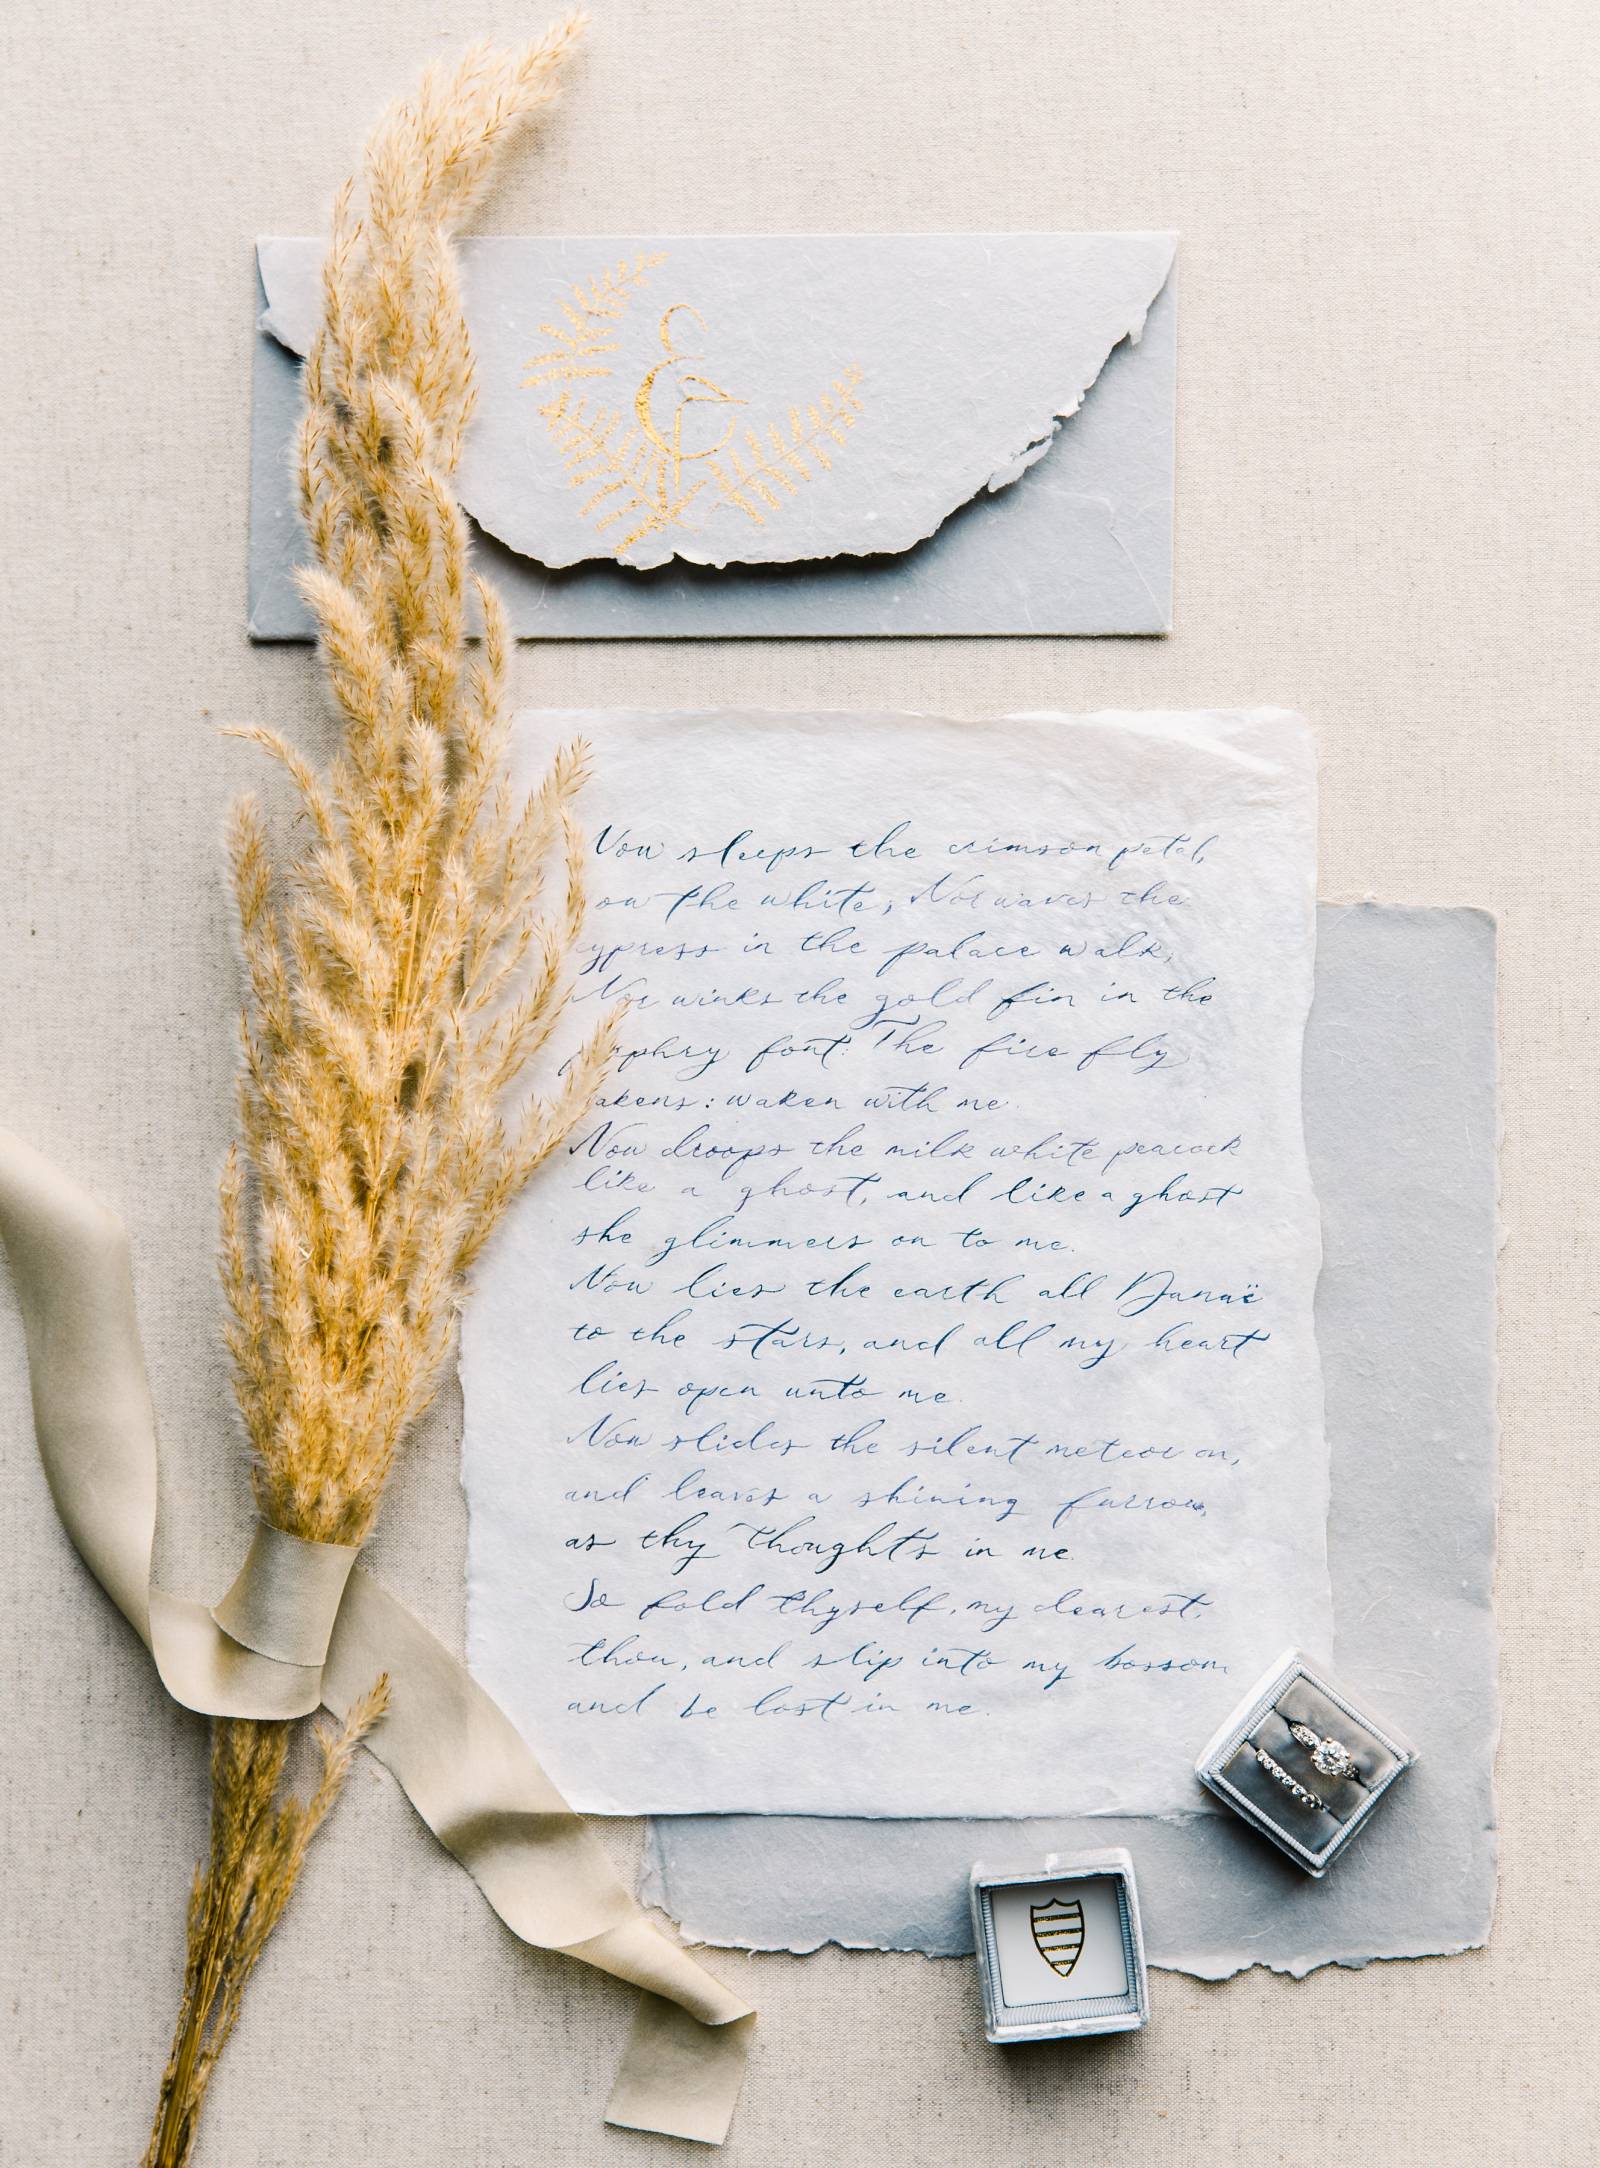 Now sleeps the crimson petal,
ow the white; Nor waves the
ypress in the palace walk;
Nor winks the gold fin in the
phry font: The fire fly
akens: waken with me.
Now droops the milk white peacock
like a ghost, and like a ghost
she glimmers on to me.
Now lies the earth all Danaë
to the stars, and all my heart
lies open unto me.
Now slides the silent meteor on,
and leaves a shining furrow,
as thy thoughts in me.
So fold thyself, my dearest,
thou, and slip into my bossom
and be lost in me.